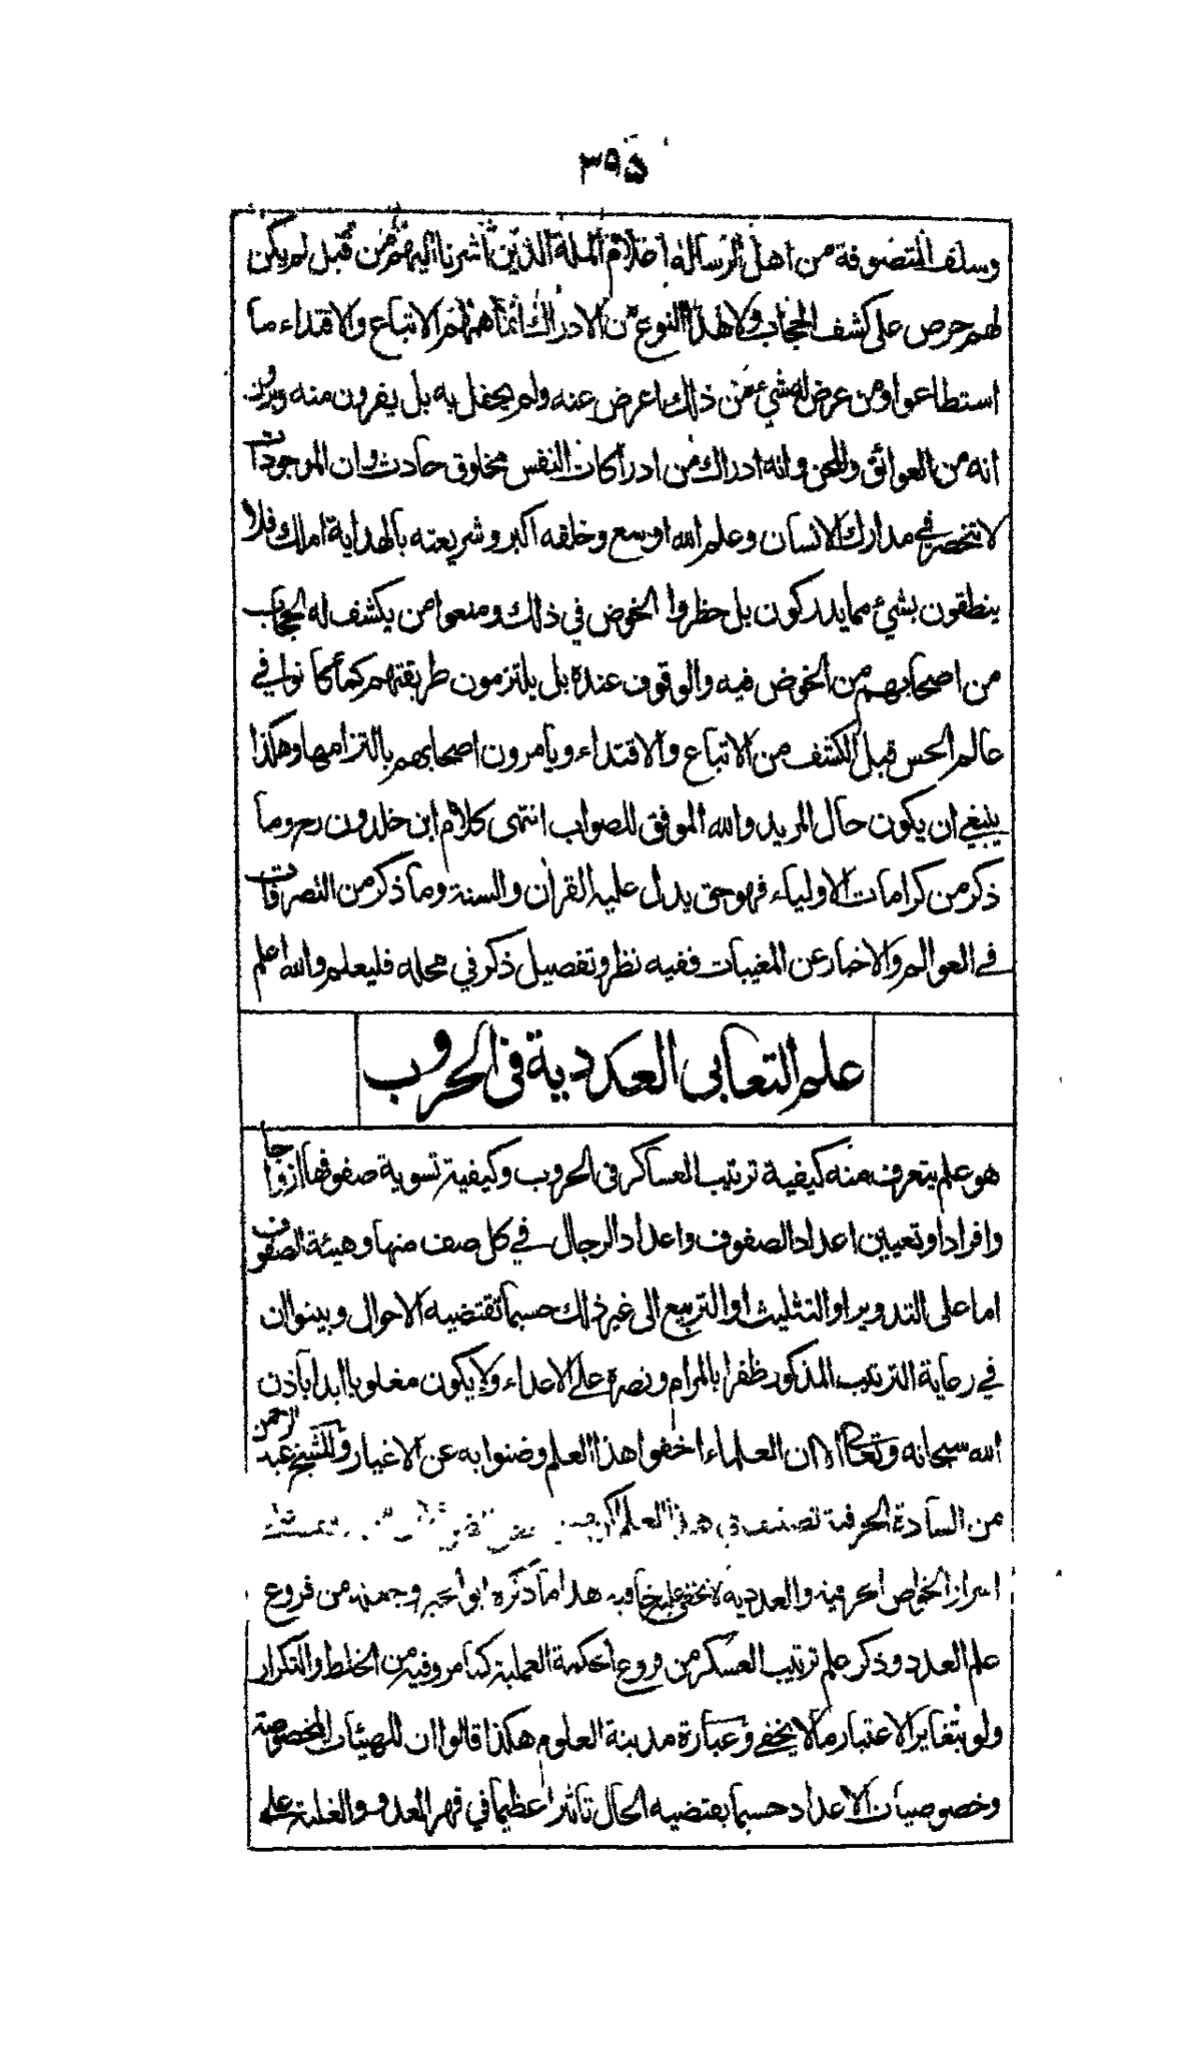 ٣٩٥
وسلف المتصوفة من اهل الرسالة اعلام الملة الذين اشرنا اليهم من قبل لم يكن
لهم حرص على كشف الحجاب ولا لهذا النوع من الادراك انما همهم الاتباع والاقتداء ما
استطاعوا ومن عرض له شيء من ذلك اعرض عنه ولم يحفل به بل يفرون منه ويرون
انه من العوائق والمحن وانه ادراك من ادراكات النفس مخلوق حادث وان الموجودات
لا تنحصر في مدارك الانسان وعلم الله اوسع وخلقه اكبر وشريعته بالهداية املك فلا
ينطقون بشيء مما يدركون بل حظروا الخوض في ذلك ومنعوا من يكشف له الحجاب
من اصحابهم من الخوض فيه والوقوف عنده بل يلتزمون طريقتهم كما كانوا في
عالم الحس قبل الكشف من الاتباع والاقتداء ويأمرون اصحابهم بالتزامها وهكذا
ينبغي ان يكون حال المريد والله الموفق للصواب انتهى كلام ابن خلدون رح وما
ذكر من كرامات الاولياء فهو حق يدل عليه القران والسنة وما ذكر من التصرفات
في العوالم والاخبار عن المغيبات ففيه نظر وتفصيل ذكر في محله فليعلم والله اعلم
علم التعابي العددية في الحروب
هو علم يتعرف منه كيفية ترتيب العساكر في الحروب وكيفية تسوية صفوفها ازواجا
وافرادا وتعيين اعداد الصفوف واعداد الرجال في كل صف منها وهيئة الصفوف
اما على التدوير او التثليث او التربيع الى غير ذلك حسبما تقتضيه الاحوال وبينوا ان
في رعاية الترتيب المذكور ظفرا بالمرام ونصرة على الاعداء ولا يكون مغلوبا ابدا باذن
الله سبحانه وتعالى الا ان العلماء اخفوا هذا العلم وضنوا به عن الاغيار وللشيخ عبد الرحمن
من السادة الحرفية تصنيف في هذا العلم
اسرار الخواص الحرفية والعددية لا يخفى عليه خافية هذا ما ذكره ابو الخير وجعله من فروع
علم العدد وذكر علم ترتيب العسكر من فروع الحكمة العملية كما مر وفيه من الخلط والتكرار
ولو بتغاير الاعتبار ما لا يخفى وعبارة مدينة العلوم هكذا قالوا ان للهيئات المخصوصة
وخصوصيات الاعداد حسبما يقتضيه الحال تأثيرا عظيما في قهر العدو والغلبة على